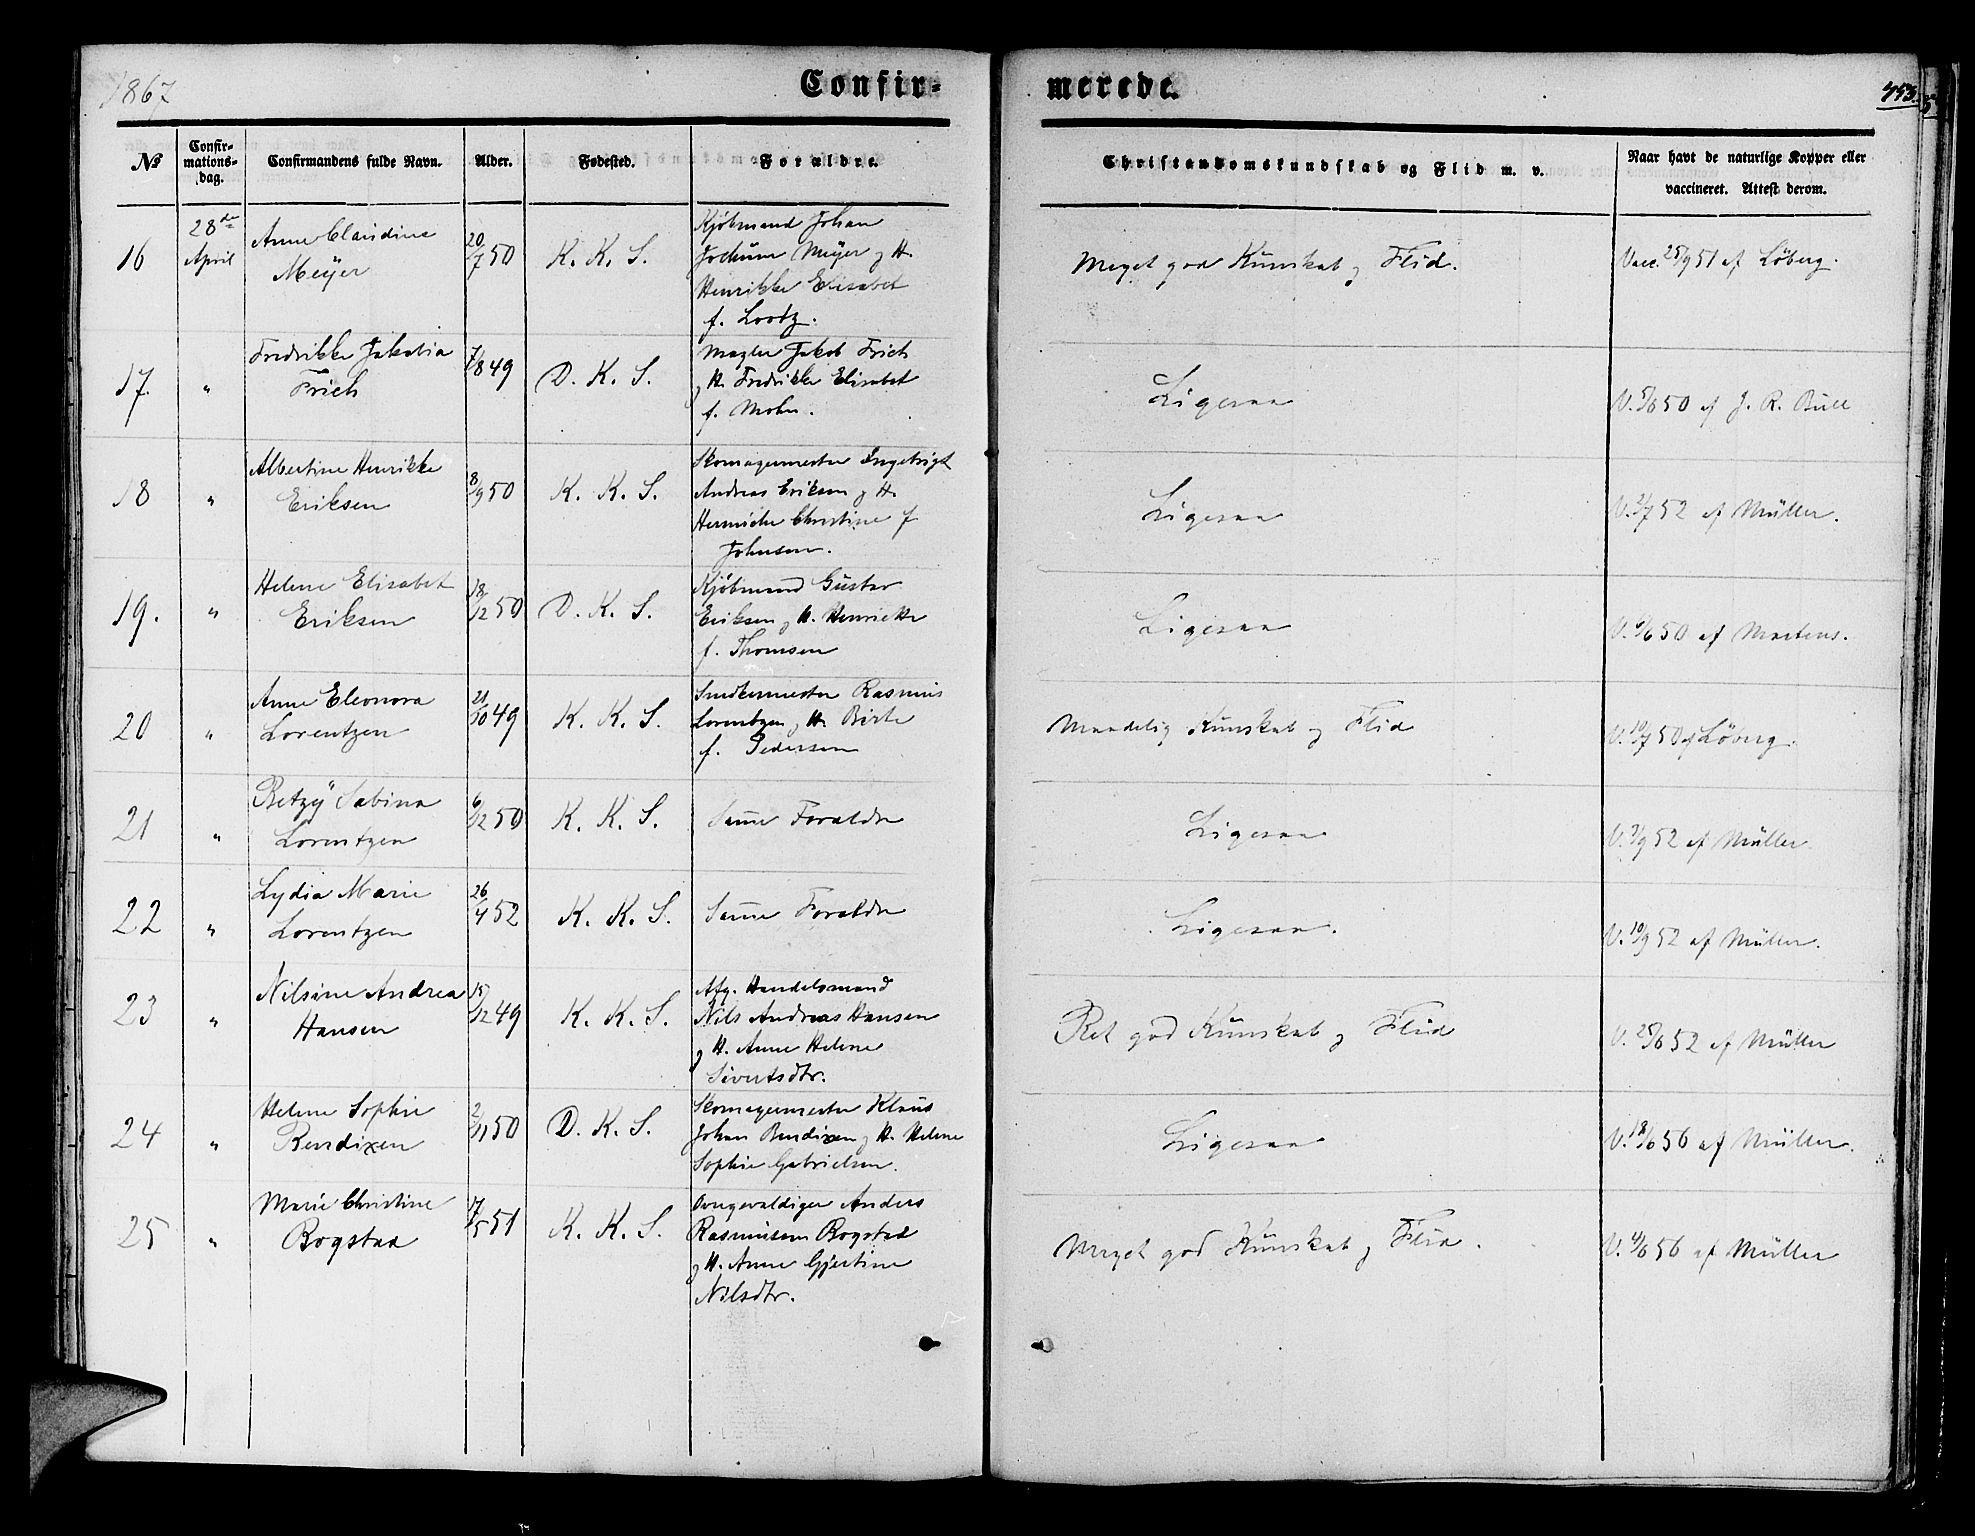 1867
Confir-
merede.
453.
№
Confir-
mations-
dag.
Confirmandens fulde Navn.
Alder.
Fødested.
Forældre.
Christendomskundskab og Flid m. v.
Naar havt de naturlige Kopper eller
vaccineret. Attest derom.
16
28de
April
Anne Claudine
Meÿer
20/7 50
K. K. S.
Kjöbmand Johan
Jochum Meÿer og H.
Henrikke Elisabet
f. Lootz.
Meget god Kunskab og Flid.
Vacc. 25/9 51 af Löberg.
17.
"
Fredrikke Jakobia
Frich
7/8 49
D. K. S.
Mægler Jakob Frich
og H. Fredrikke Elisabet
f. Mohn.
Ligesaa
V. 5/6 50 af J. R. Bull
18
"
Albertine Henrikke
Eriksen
8/9 50
K. K. S.
Skomagermester Ingebrigt
Andreas Eriksen og H.
Christine f
Johnsen.
Ligesaa
V. 2/7 52 af Müller.
19.
"
Helene Elisabet
Eriksen
18/12 50
D. K. S.
Kjöbmand Gustav
Eriksen og H. Henriette
f. Thomsen
Ligesaa
V. 6/6 50 af Martens.
20
"
Anne Eleonora
Lorentzen
21/10 49
K. K. S.
Snedkermester Rasmus
Lorentzen og H. Birte
f. Pedersen
Maadelig Kunskab og Flid
V. 10/7 50 af Löberg.
21
"
Betzÿ Sabina
Lorentzen
6/12 50
K. K. S.
Samme Forældre
Ligesaa
V. 3/9 52 af Müller.
22
"
Lydia Marie
Lorentzen
26/4 52
K. K. S.
Samme Forældre
Ligesaa.
V. 10/9 52 af Müller.
23
"
Nilsine Andrea
Hansen
15/12 49
K. K. S.
Afg. Handelsmand
Nils Andreas Hansen
og H. Anne Helene
Sivertsdtr.
Ret god Kunskab og Flid
V. 25/6 52 af Müller
24
"
Helene Sophie
Bendixen
2/11 50
D. K. S.
Skomagermester Klaus
Johan Bendixen og H. Helene
Sophie Gabrielsen.
Ligesaa
V. 18/6 56 af Müller.
25
"
Marie Christine
Bogstad
17/5 51
K. K. S.
Anders
Rasmussen Bogstad
og H. Anne Gjertine
Nilsdtr.
Meget god Kunskab og Flid.
V. 4/6 56 af Müller